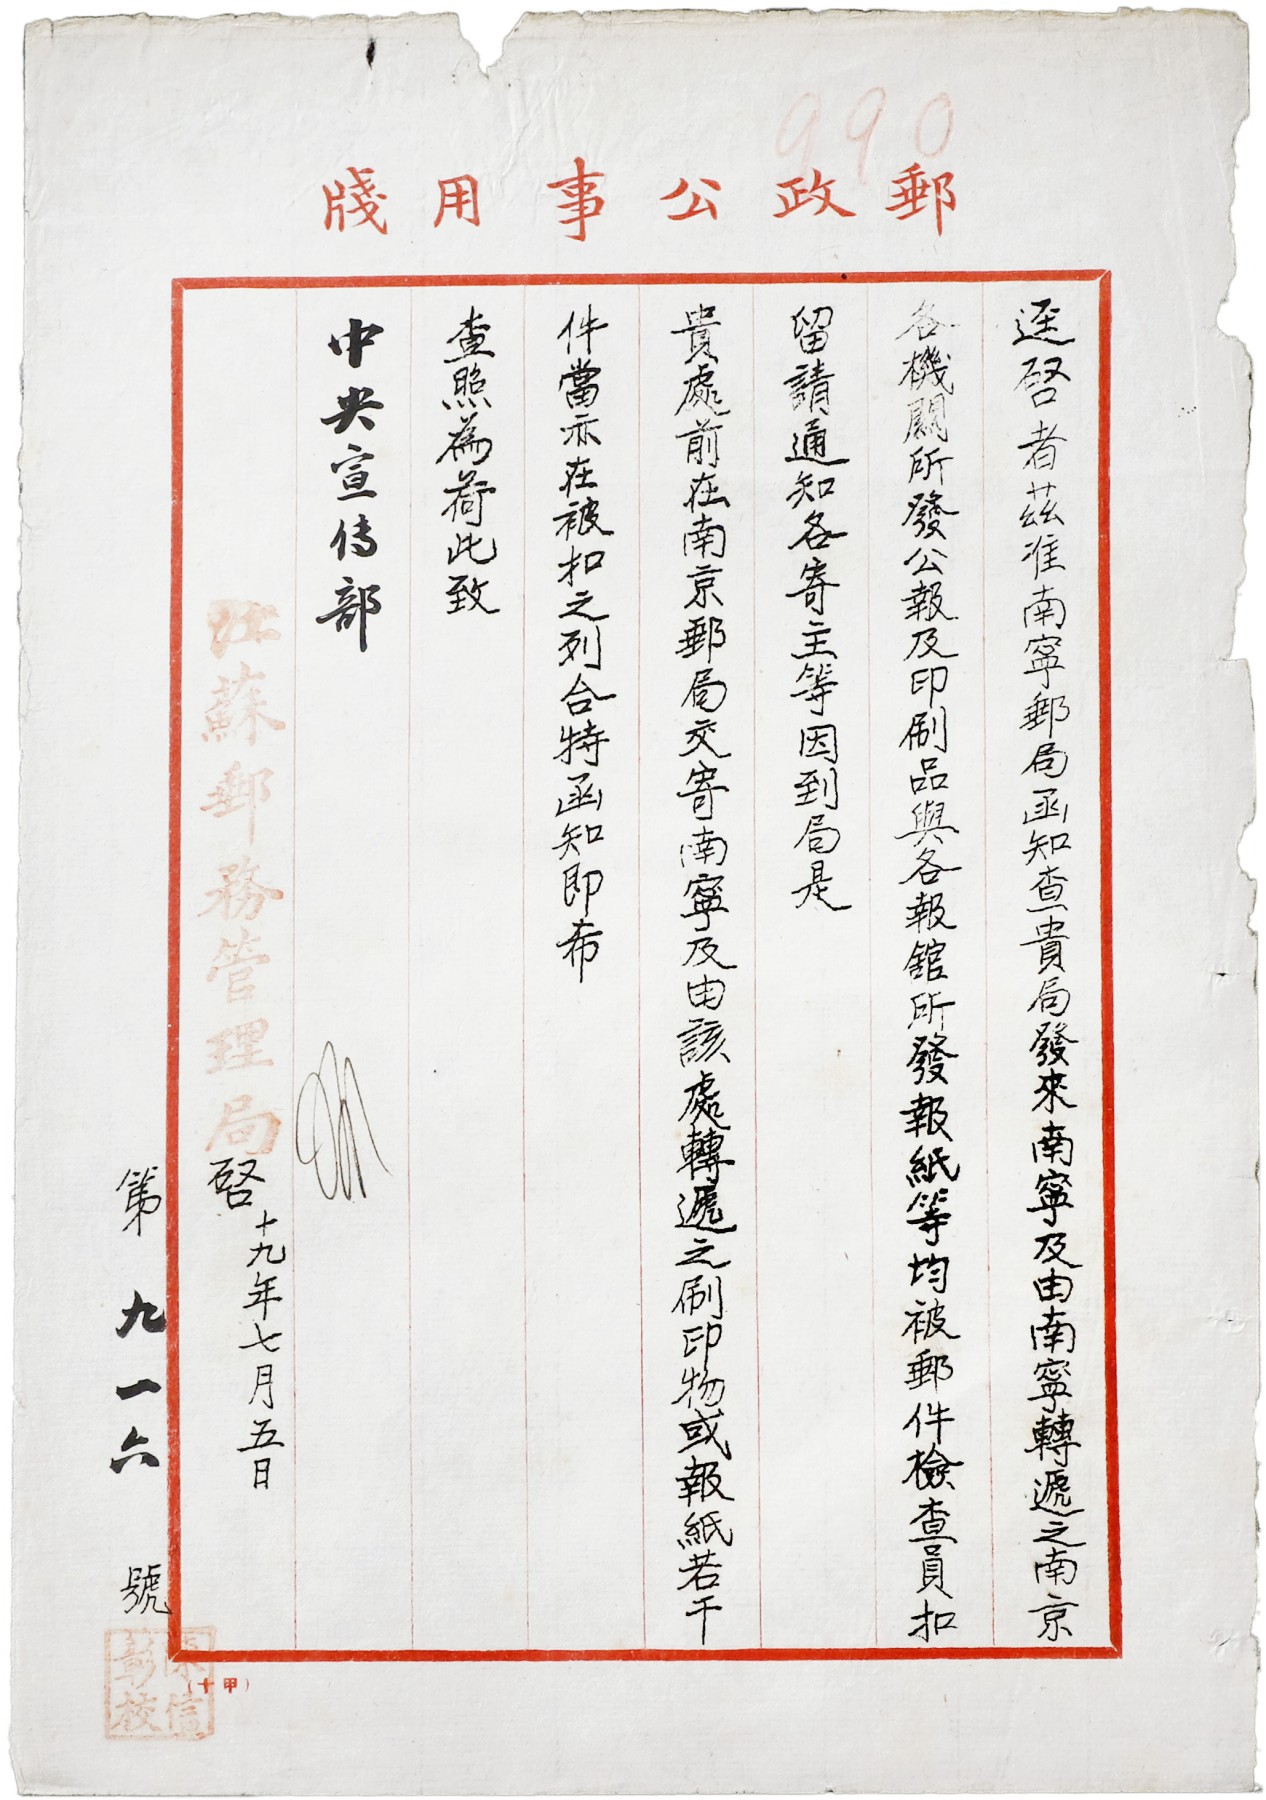 990
郵政公事用牋
逕啓者茲准南寧郵局函知查貴局發來南寧及由南寧轉遞之南京
各機關所發公報及印刷品與各報館所發報紙等均被郵件檢查員扣
留請通知各寄主等因到局是
貴處前在南京郵局交寄南寧及由該處轉遞之刷印物或報紙若干
件當亦在被扣之列合特函知即希
查照為荷此致
中央宣傳部
江蘇郵務管理局啓
十九年七月五日
第九一六號
(甲十)
信
彭校